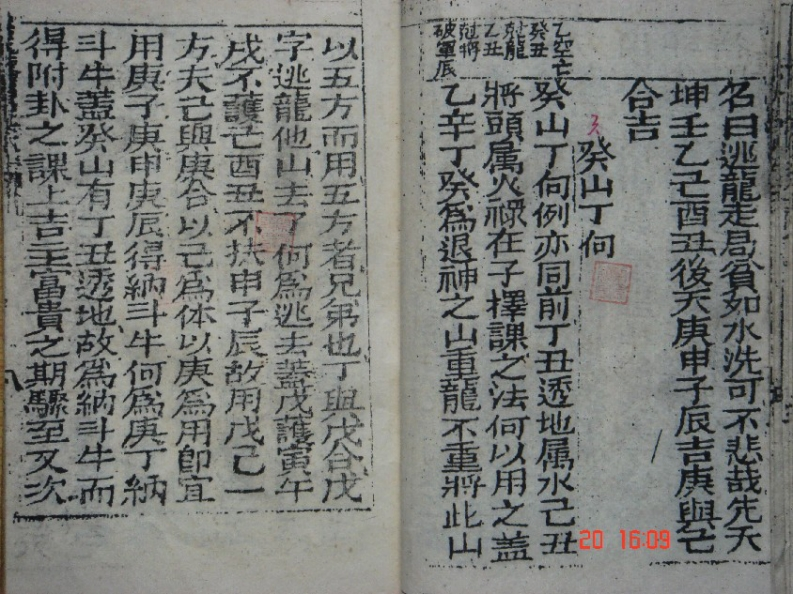 乙空亡
癸丑
尅龍
乙丑
尅將
破軍辰
名曰逃龍走局貧如水洗可不悲哉先天
坤壬乙己酉丑後天庚申子辰吉庚與己
合吉
癸山丁向
癸山丁向例亦同前丁丑透地属水己丑
將頭属火祿在子擇課之法何以用之盖
乙辛丁癸為退神之山重龍不重將此山
以五方而用五方者兄弟也丁與戊合戊
字逃龍他山去了何為逃去蓋戊護寅午
戌不護己酉丑不扶申子辰故用戊己一
方夫己與庚合以己為体以庚為用卽宜
用庚子庚申庚辰得納斗牛何為庚丁納
斗牛蓋癸山有丁丑透地故為納斗牛而
得附卦之課上吉主富貴之期驟至又次
20 16:09